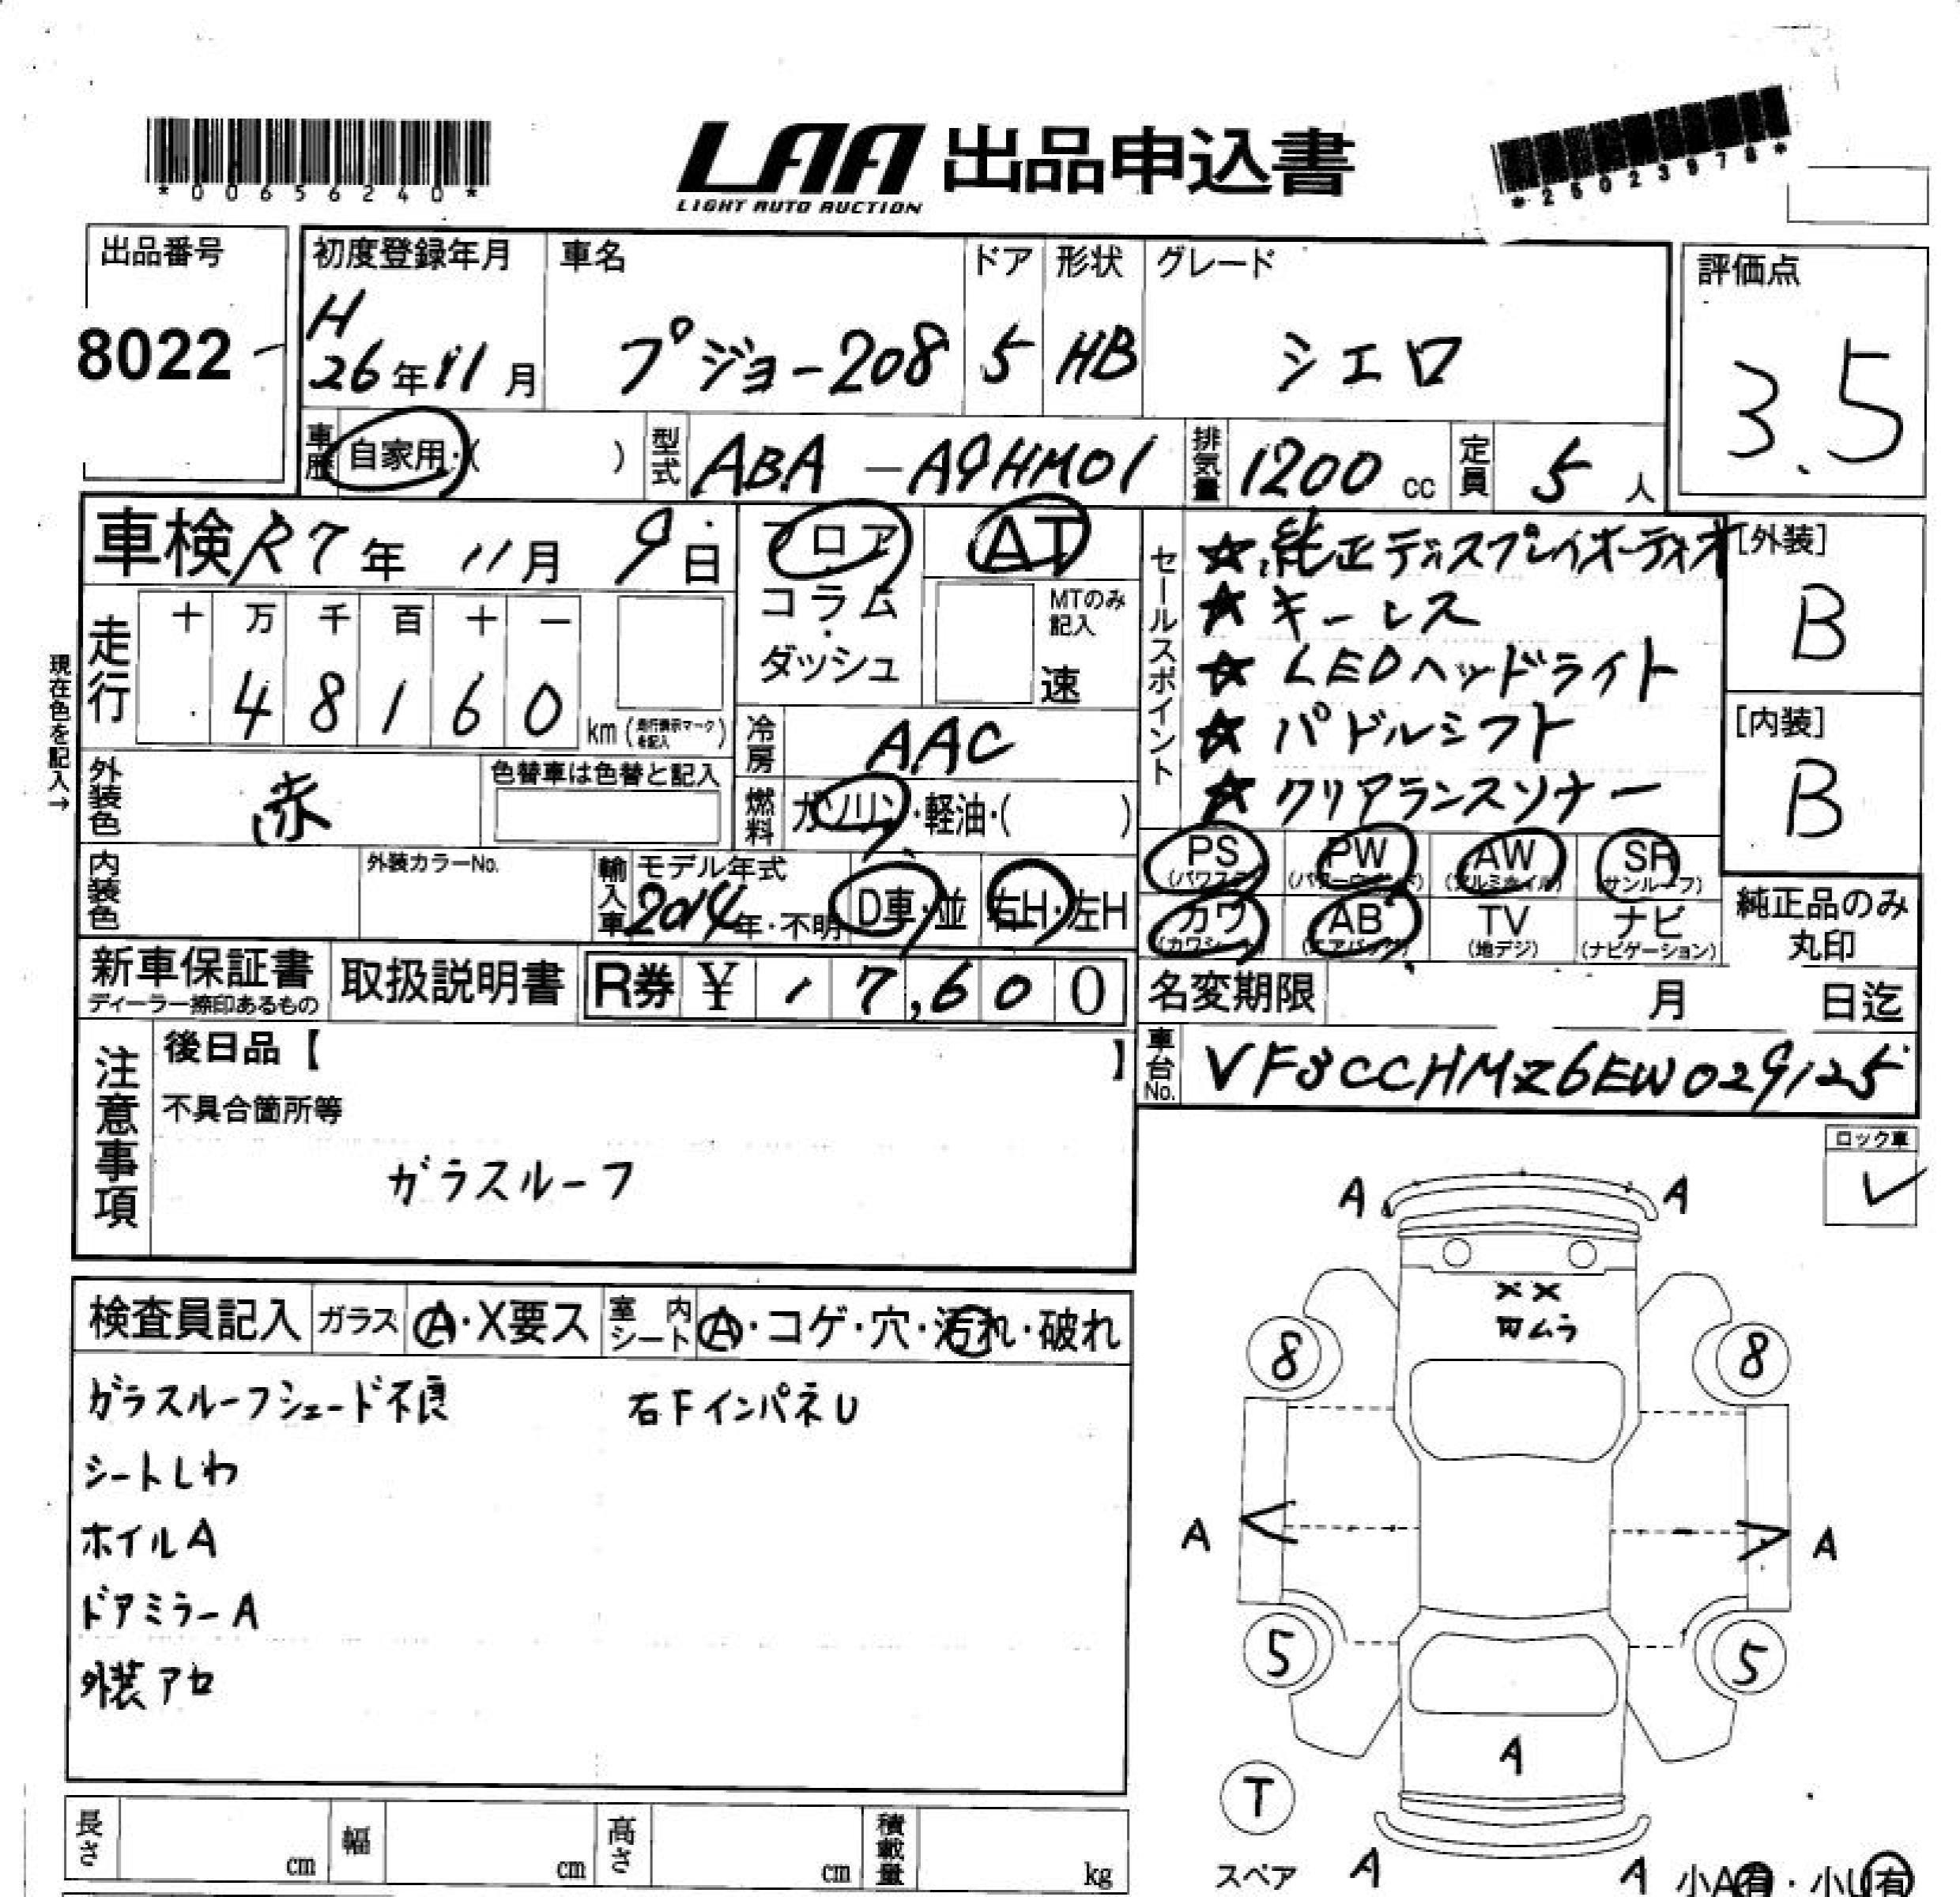 *00656240*
LAA 出品申込書
LIGHT AUTO AUCTION
*26023978*
出品番号
8022
初度登録年月
H
26年11月
車名
プジョー208
ドア
5
形状
HB
グレード
シエロ
評価点
3.5
車歴 自家用・( )
型式 ABA-A9HM01
排気量 1200 cc
定員 5 人
車検 R7年 11月 9日
フロア・コラム・ダッシュ
AT
MTのみ記入
速
走行
十 万 千 百 十 一
4 8 1 6 0
km (走行表示マークを記入)
現在色を記入→
外装色 赤
色替車は色替と記入
冷房 AAC
燃料 ガソリン・軽油・( )
内装色
外装カラーNo.
輸入車 モデル年式
2014年・不明
D車・並
右H・左H
セールスポイント
☆純正ディスプレイオーディオ
☆キーレス
☆LEDヘッドライト
☆パドルシフト
☆クリアランスソナー
[外装]
B
[内装]
B
PS (パワステ)
PW (パワーウインド)
AW (アルミホイル)
SR (サンルーフ)
カワ (カワシート)
AB (エアバック)
TV (地デジ)
ナビ (ナビゲーション)
純正品のみ
丸印
新車保証書
ディーラー捺印あるもの
取扱説明書
R券 ¥ 17,600
名変期限 月 日迄
車台No. VF3CCHMZ6EW029125
注意事項
後日品【 】
不具合箇所等
ガラスルーフ
ロック車
✓
検査員記入
ガラス A・X要ス
室内シート A・コゲ・穴・汚れ・破れ
ガラスルーフシェード不良 右FインパネU
シートしわ
ホイルA
ドアミラーA
外装アセ
A A
XX
ムラ
8 8
A A
5 5
A
T
スペア
A A
小A有・小U有
長さ cm
幅 cm
高さ cm
積載量 kg